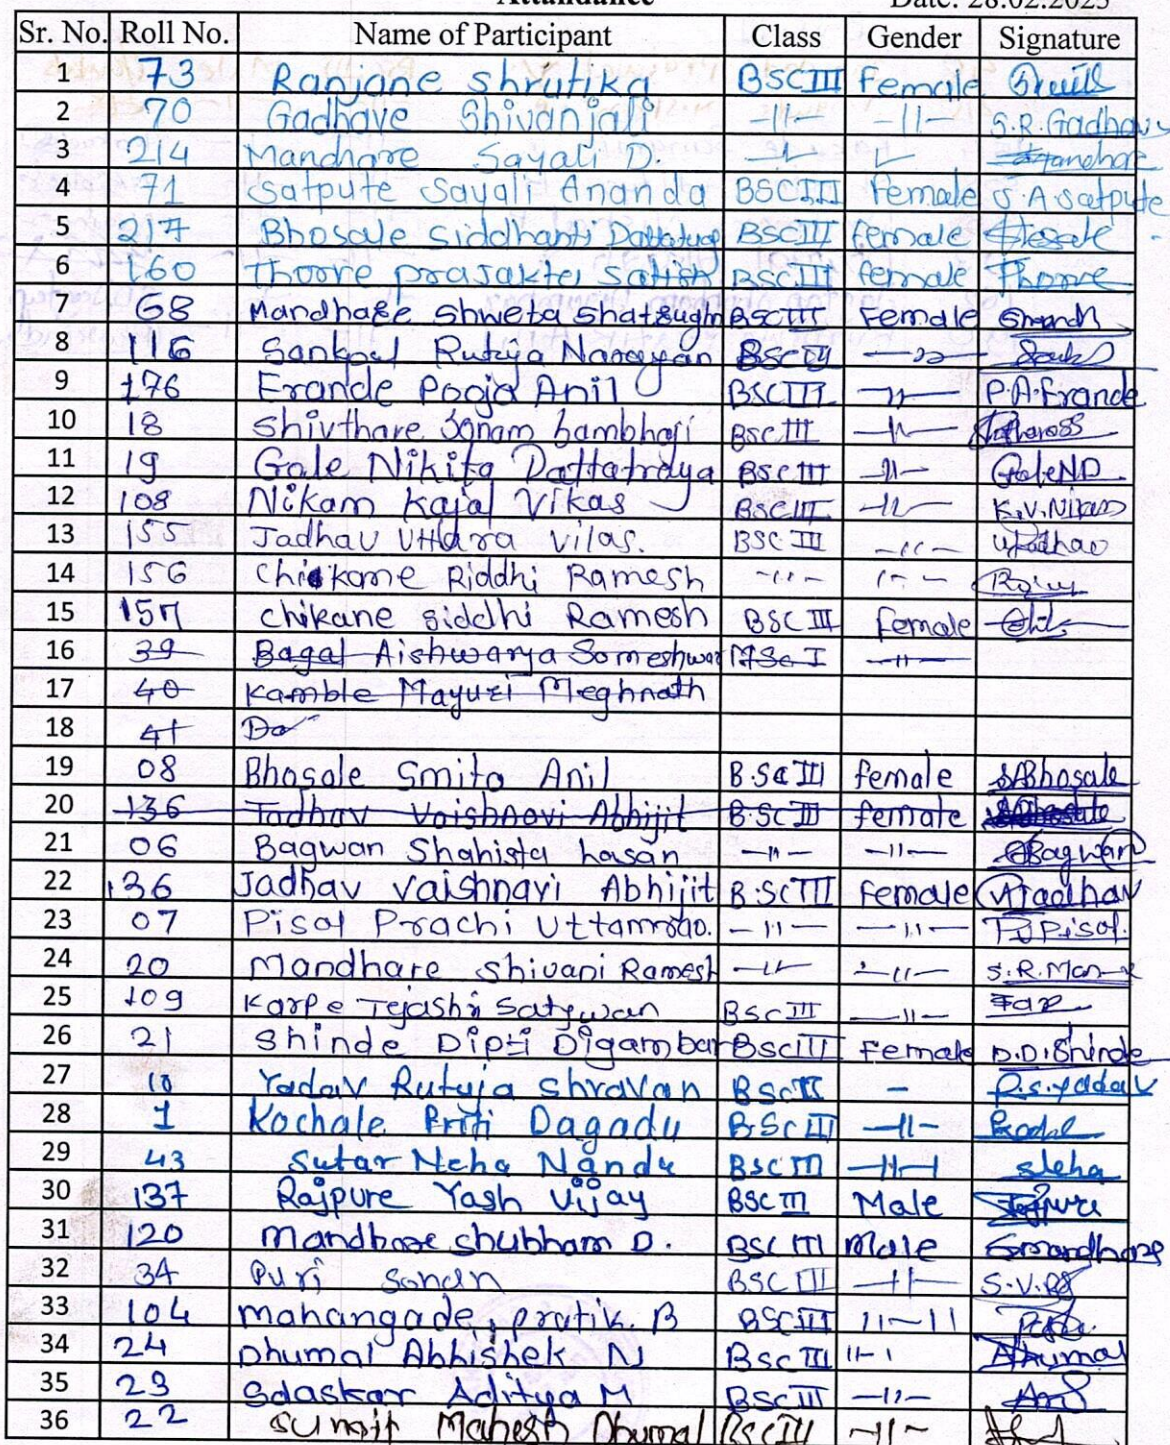 Attandance Date: 28.02.2023
Sr. No. Roll No. Name of Participant Class Gender Signature
1 73 Ranjane Shrutika BSC III Female
2 70 Gadhave Shivanjali -11- -11- S.R.Gadhave
3 214 Mandhare Sayali D. -11-
4 71 Satpute Sayali Ananda BSC III Female S.A satpute
5 217 Bhosale Siddhanti BSC III female
6 160 Thorve prajakta Satish BSC III female Thorve
7 68 Mandhare Shweta Shatrughn BSC III Female
8 116 Sankpal Rutuja Narayan BSC III -11-
9 176 Erande Pooja Anil BSC III -11- P.A.Erande
10 18 Shivthare Sonam Sambhaji BSC III -11-
11 19 Gale Nikita Dattatraya BSC III -11- GaleND
12 108 Nikam Kajal Vikas BSC III -11- K.V.Nikam
13 155 Jadhav Uttara Vilas. BSC III -11- Ujadhav
14 156 Chikane Riddhi Ramesh -11- -11-
15 157 chikane siddhi Ramesh BSC III Female
16 39 Bagal Aishwarya Someshwar MSc I -11-
17 40 Kamble Mayuri Meghnath
18 41 Da
19 08 Bhosale Smita Anil B.Sc III female SABhosale
20 136 Jadhav Vaishnavi Abhijit B.Sc III female
21 06 Bagwan Shahista hasan -11- -11- Bagwan
22 136 Jadhav Vaishnavi Abhijit B.Sc III Female VJadhav
23 07 Pisal Prachi Uttamrao. -11- -11- Pisal.
24 20 Mandhare Shivani Ramesh -11- -11- S.R.Man
25 109 Karpe Tejashri Satywan BSC III -11-
26 21 Shinde Dipti Digambar BSC III Female D.D.Shinde
27 10 Yadav Rutuja Shravan BSC III - R.S.Yadav
28 1 Kochale Priti Dagadu B.Sc III -11-
29 43 Sutar Neha Nandu BSC III -11- Neha
30 137 Rajpure Yash Vijay BSC III Male
31 120 Mandhare shubham D. BSC III Male Smandhare
32 34 Puri Sanan BSC III -11-
33 104 mahangade, pratik. B BSC III 11-11
34 24 Dhumal Abhishek N BSC III 11-1 Adhumal
35 23 Sdaskar Aditya M BSC III -11-
36 22 Sumit Mahesh Dhumal BSC III -11-